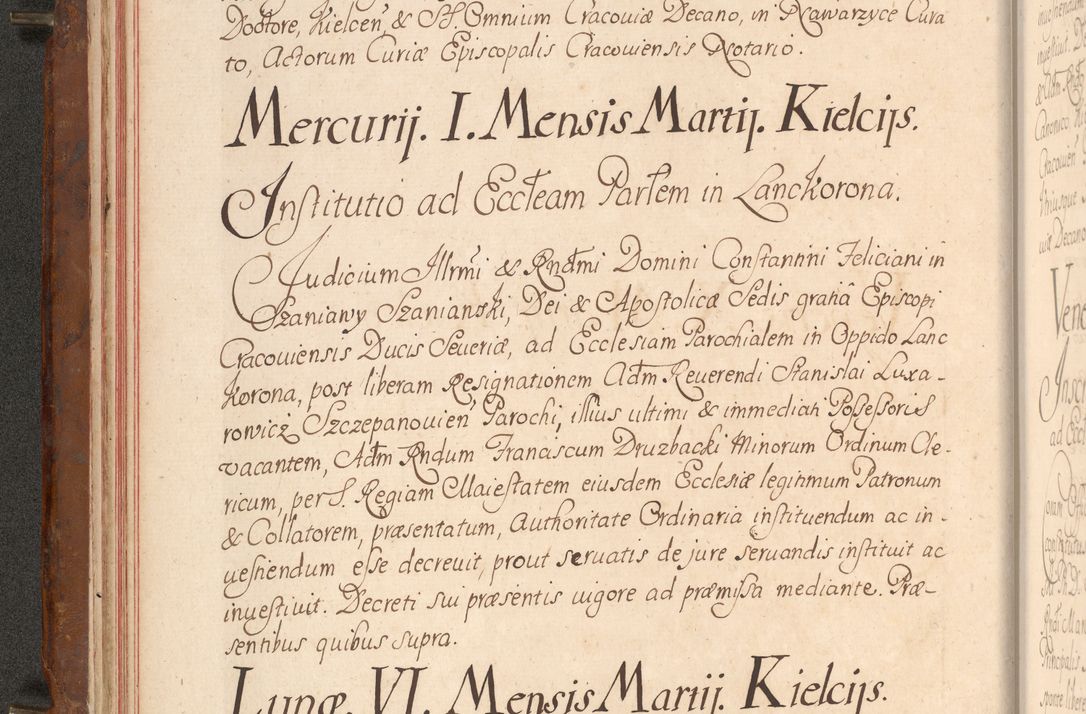 Doctore, Kielcen̄, & SS. Omnium Cracoviæ Decano, in Nawarzyce Cura
to, Actorum Curiæ Episcopalis Cracoviensis Notario.
Mercurij. I. Mensis Martij. Kielcijs.
Institutio ad Eccłeam Parłem in Lanckorona.
Judicium Illrm̄i & Rndm̄i Domini Constantini Feliciani in
Szaniawy Szanianski, Dei & Apostolicæ Sedis gratiâ Episcopi
Cracouiensis Ducis Seueriæ, ad Ecclesiam Parochialem in Oppido Lanc
korona, post liberam Resignationem Adm̄ Reuerendi Stanislai Luxa-
rowicz Szczepanouien̄ Parochi, illius ultimi & immediati Possessoris
vacantem, Adm̄ Rndum Franciscum Druzbacki Minorum Ordinum Cle-
ricum, per S. Regiam Maiestatem eiusdem Ecclesiæ legitimum Patronum
& Collatorem, præsentatum, Authoritate Ordinaria instituendum ac in-
uestiendum esse decreuit, prout seruatis de jure seruandis instituit ac
inuestiuit. Decreti sui præsentis uigore ad præmissa mediante. Præ-
sentibus quibus supra.
Lunæ. VI. Mensis Martij. Kielcijs.